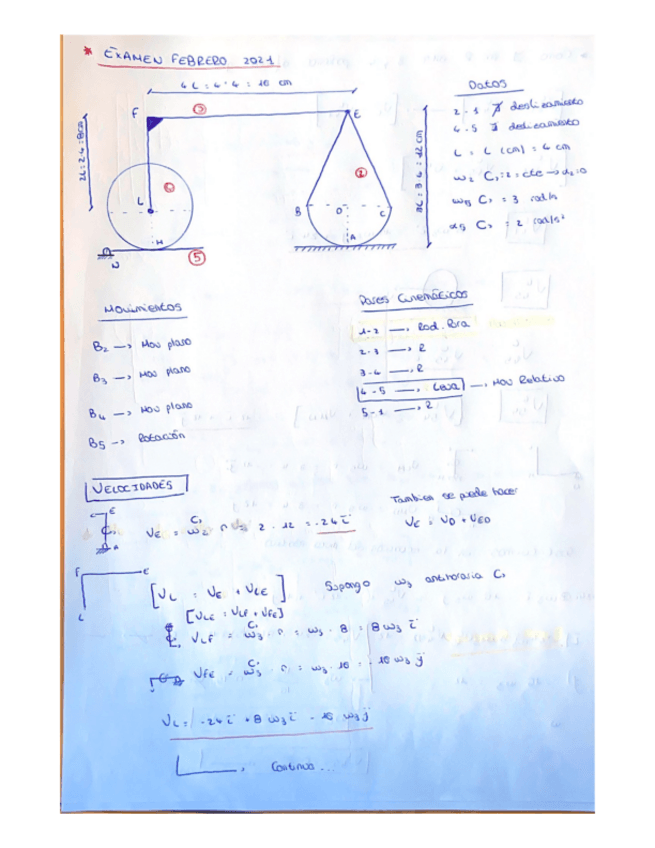 * EXAMEN FEBRERO 2021
Datos
F
③
E
2L = 2·4 = 8cm
L
②
B
O
C
A
H
N
⑤
2-1 ∄ deslizamiento
L = L (cm) = 4 cm
ω5 = 3 rad/s
α5 = 2 rad/s²
Movimientos
B2 → Mov plano
B3 → Mov plano
B4 → Mov plano
B5 → Rotación
Pares Cinemáticos
1-2 → Rod. Pura
2-3 → R
3-4 → R
4-5 → Leva → Mov Relativo
5-1 → R
VELOCIDADES
E
A
VE = ω2 · r = 2 · 12 = -24 i
Tambien se puede hacer
VE = VO + VEO
F
E
L
[VL = VE + VLE]
Supongo ω3 antihoraria
[VLE = VLF + VFE]
VLF = ω3 · r = ω3 · 8 = 8ω3 i
VFE = ω3 · r = ω3 · 16 = -16 ω3 j
VL = -24 i + 8 ω3 i - 16 ω3 j
Continua ...